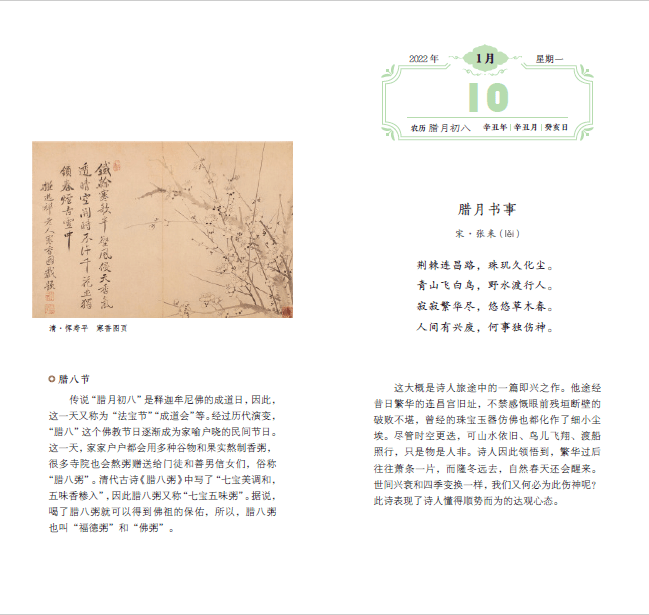 清·恽寿平 寒香图页
腊八节
传说“腊月初八”是释迦牟尼佛的成道日，因此，
这一天又称为“法宝节”“成道会”等。经过历代演变，
“腊八”这个佛教节日逐渐成为家喻户晓的民间节日。
这一天，家家户户都会用多种谷物和果实熬制香粥，
很多寺院也会熬粥赠送给门徒和善男信女们，俗称
“腊八粥”。清代古诗《腊八粥》中写了“七宝美调和，
五味香糁入”，因此腊八粥又称“七宝五味粥”。据说，
喝了腊八粥就可以得到佛祖的保佑，所以，腊八粥
也叫“福德粥”和“佛粥”。
2022 年 1月 星期一
10
农历 腊月初八 辛丑年 | 辛丑月 | 癸亥日
腊月书事
宋·张耒（lěi）
荆棘连昌路，珠玑久化尘。
青山飞白鸟，野水渡行人。
寂寂繁华尽，悠悠草木春。
人间有兴废，何事独伤神。
这大概是诗人旅途中的一篇即兴之作。他途经
昔日繁华的连昌宫旧址，不禁感慨眼前残垣断壁的
破败不堪，曾经的珠宝玉器仿佛也都化作了细小尘
埃。尽管时空更迭，可山水依旧、鸟儿飞翔、渡船
照行，只是物是人非。诗人因此领悟到，繁华过后
往往萧条一片，而隆冬远去，自然春天还会醒来。
世间兴衰和四季变换一样，我们又何必为此伤神呢？
此诗表现了诗人懂得顺势而为的达观心态。